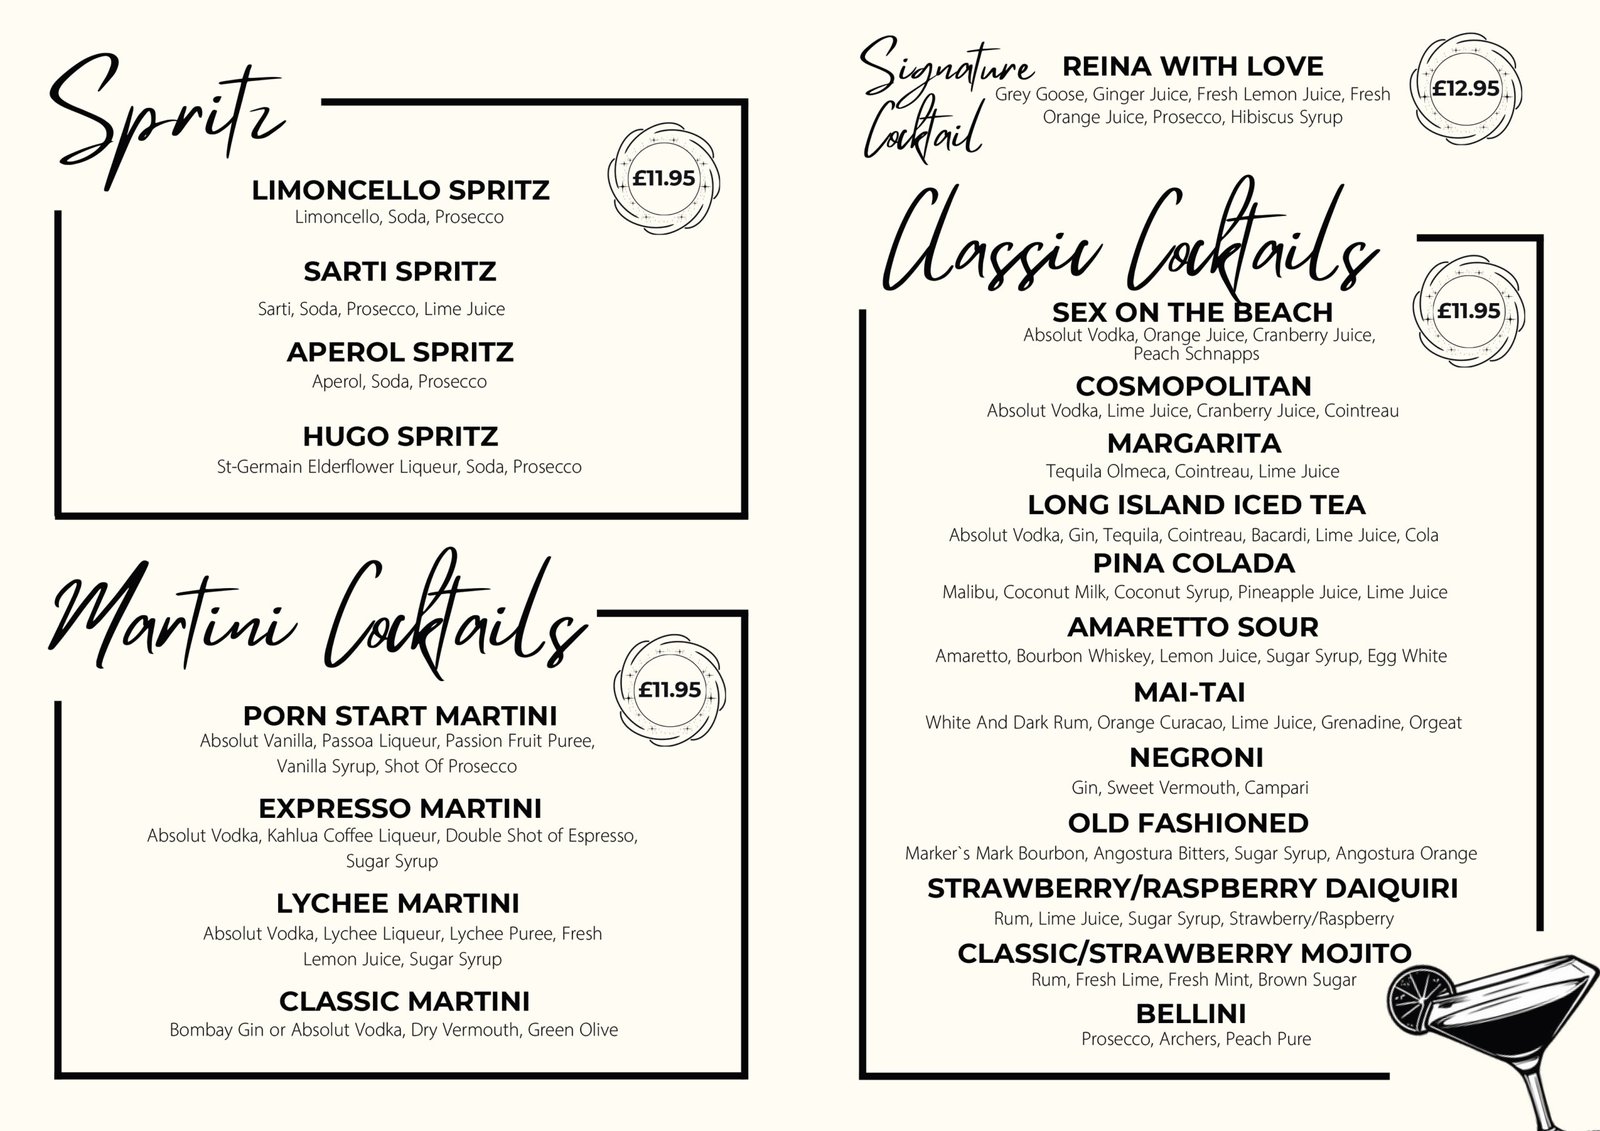 Spritz
£11.95
LIMONCELLO SPRITZ
Limoncello, Soda, Prosecco
SARTI SPRITZ
Sarti, Soda, Prosecco, Lime Juice
APEROL SPRITZ
Aperol, Soda, Prosecco
HUGO SPRITZ
St-Germain Elderflower Liqueur, Soda, Prosecco
Martini Cocktails
£11.95
PORN START MARTINI
Absolut Vanilla, Passoa Liqueur, Passion Fruit Puree,
Vanilla Syrup, Shot Of Prosecco
EXPRESSO MARTINI
Absolut Vodka, Kahlua Coffee Liqueur, Double Shot of Espresso,
Sugar Syrup
LYCHEE MARTINI
Absolut Vodka, Lychee Liqueur, Lychee Puree, Fresh
Lemon Juice, Sugar Syrup
CLASSIC MARTINI
Bombay Gin or Absolut Vodka, Dry Vermouth, Green Olive
Signature
Cocktail
REINA WITH LOVE
Grey Goose, Ginger Juice, Fresh Lemon Juice, Fresh
Orange Juice, Prosecco, Hibiscus Syrup
£12.95
Classic Cocktails
£11.95
SEX ON THE BEACH
Absolut Vodka, Orange Juice, Cranberry Juice,
Peach Schnapps
COSMOPOLITAN
Absolut Vodka, Lime Juice, Cranberry Juice, Cointreau
MARGARITA
Tequila Olmeca, Cointreau, Lime Juice
LONG ISLAND ICED TEA
Absolut Vodka, Gin, Tequila, Cointreau, Bacardi, Lime Juice, Cola
PINA COLADA
Malibu, Coconut Milk, Coconut Syrup, Pineapple Juice, Lime Juice
AMARETTO SOUR
Amaretto, Bourbon Whiskey, Lemon Juice, Sugar Syrup, Egg White
MAI-TAI
White And Dark Rum, Orange Curacao, Lime Juice, Grenadine, Orgeat
NEGRONI
Gin, Sweet Vermouth, Campari
OLD FASHIONED
Marker`s Mark Bourbon, Angostura Bitters, Sugar Syrup, Angostura Orange
STRAWBERRY/RASPBERRY DAIQUIRI
Rum, Lime Juice, Sugar Syrup, Strawberry/Raspberry
CLASSIC/STRAWBERRY MOJITO
Rum, Fresh Lime, Fresh Mint, Brown Sugar
BELLINI
Prosecco, Archers, Peach Pure